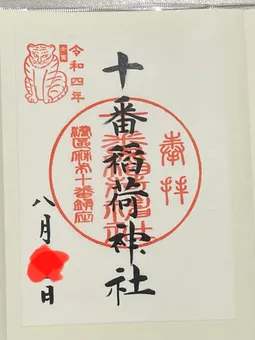 奉拝
十番稲荷神社
港区麻布十番鎮座
令和四年
八月 日